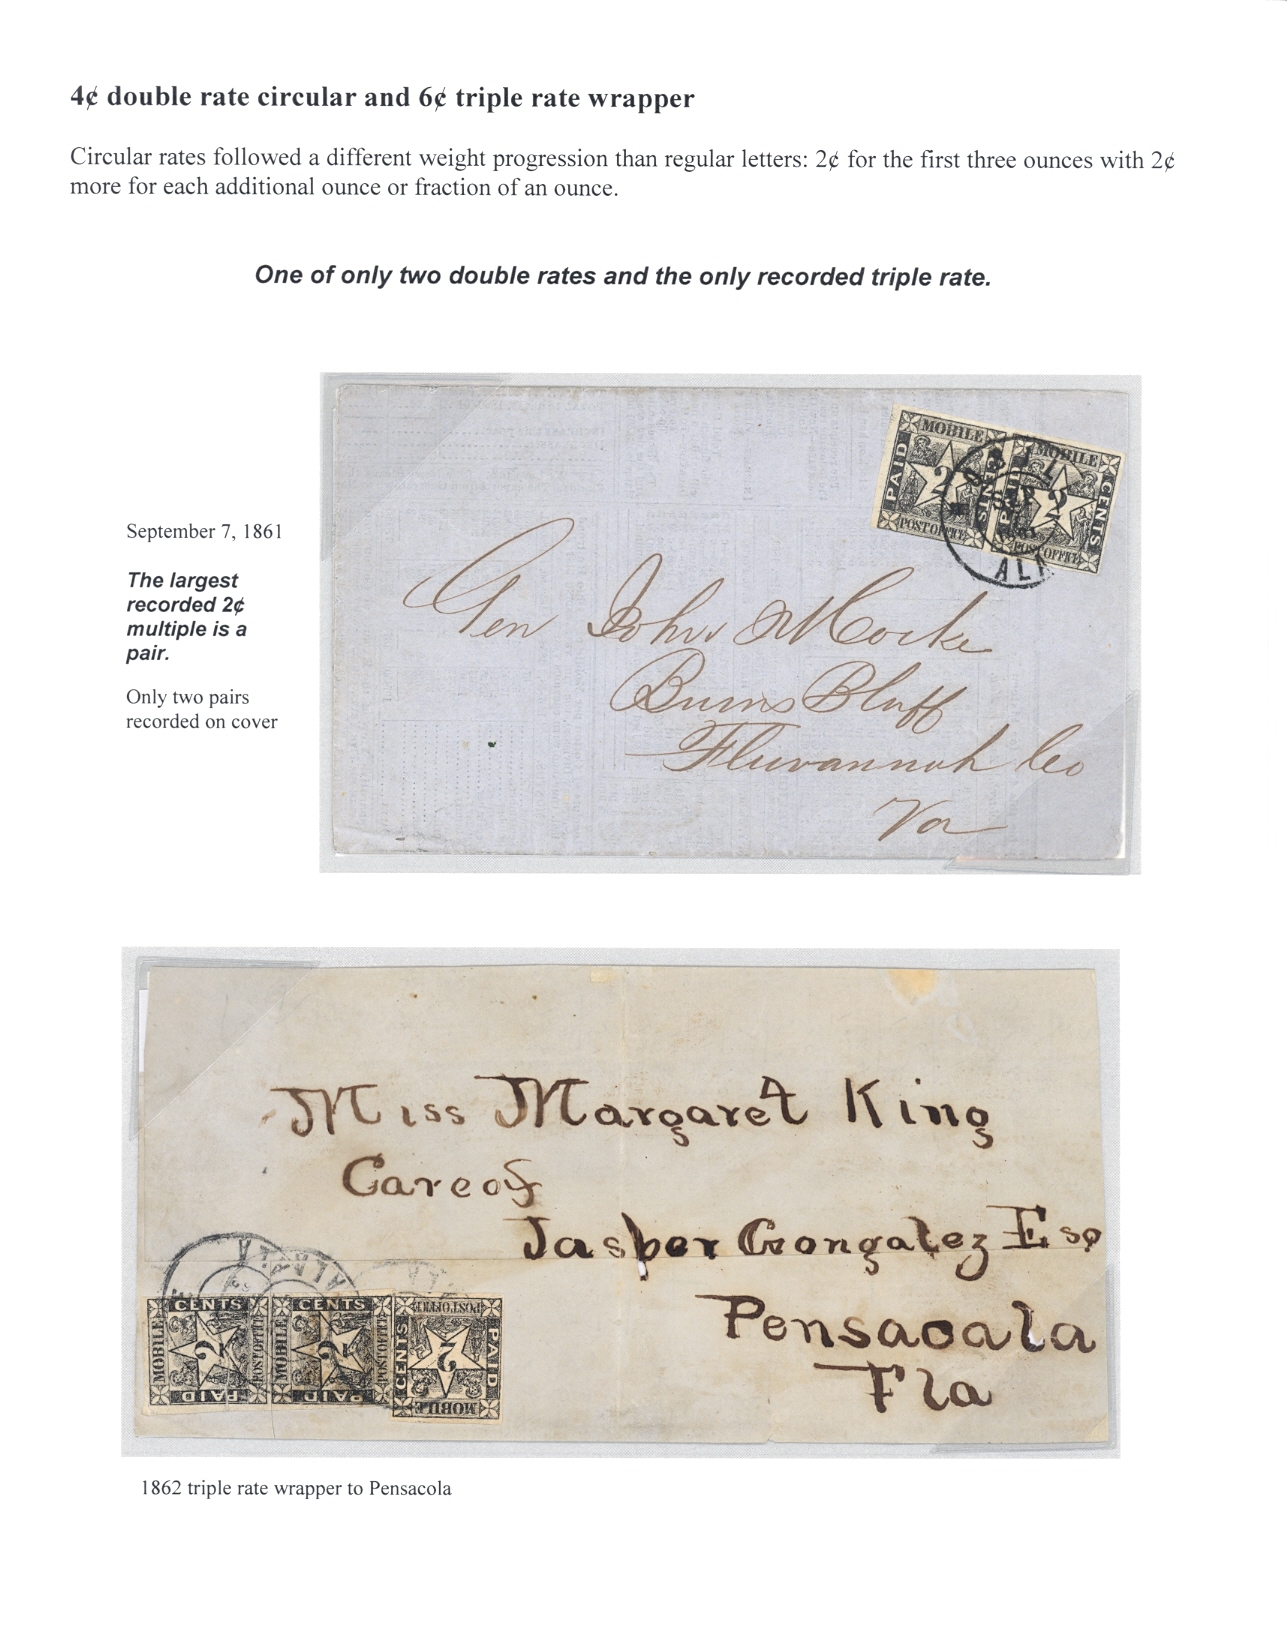 4¢ double rate circular and 6¢ triple rate wrapper
Circular rates followed a different weight progression than regular letters: 2¢ for the first three ounces with 2¢
more for each additional ounce or fraction of an ounce.
One of only two double rates and the only recorded triple rate.
September 7, 1861
The largest
recorded 2¢
multiple is a
pair.
Only two pairs
recorded on cover
MOBILE
PAID
2
CENTS
POST OFFICE
MOBILE
PAID
2
CENTS
POST OFFICE
ALA
Gen John H Cocke
Bluff
Fluvannah Co
Va
Miss Margaret King
Care of
Jasper Gongalez Esq
Pensacola
Fla
CENTS
MOBILE
2
POST OFFICE
PAID
CENTS
MOBILE
2
POST OFFICE
PAID
POST OFFICE
CENTS
2
PAID
MOBILE
1862 triple rate wrapper to Pensacola